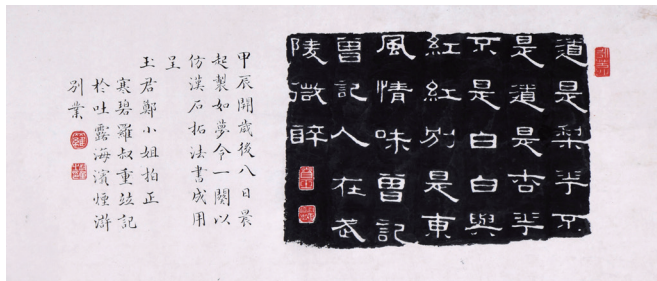 道是梨花不
是道是杏花
不是白白與
紅紅別是東
風情味曾記
曾記人在武
陵微醉
甲辰開歲後八日晨
起製如夢令一闋以
仿漢石拓法書成用
呈
玉君鄭小姐拍正
寒碧羅叔重竝記
於吐露海濱煙滸
別業